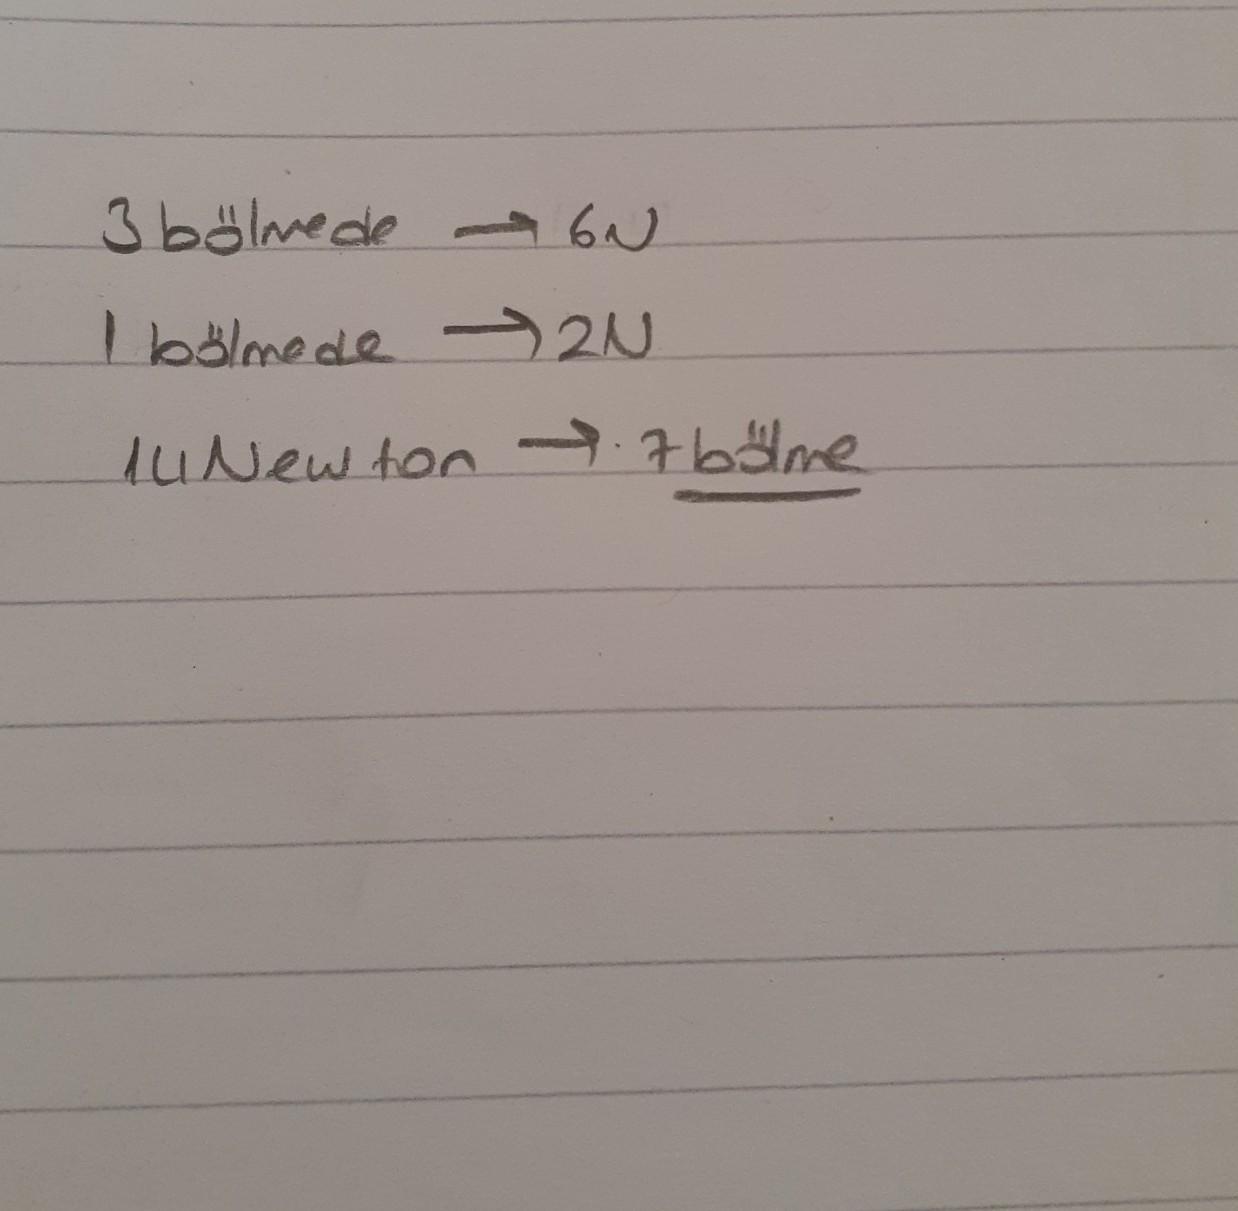 3 bölmede → 6N
1 bölmede → 2N
14 Newton → 7 bölme